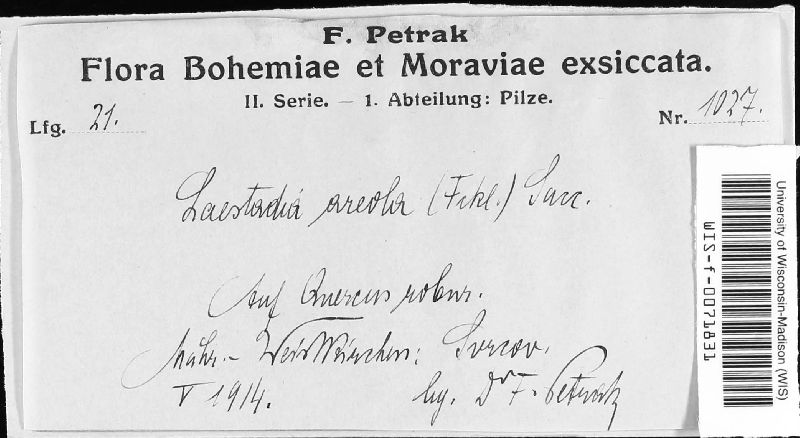 F. Petrak
Flora Bohemiae et Moraviae exsiccata.
II. Serie. – 1. Abteilung: Pilze.
Lfg. 21.
Nr. 1027.
Laestadia areola (Fckl.) Sacc.
Auf Quercus robur.
Mähr.- Weisskirchen: Svrcov.
V 1914.
lg. Dr F. Petrak
University of Wisconsin-Madison (WIS)
WIS-f-0071831